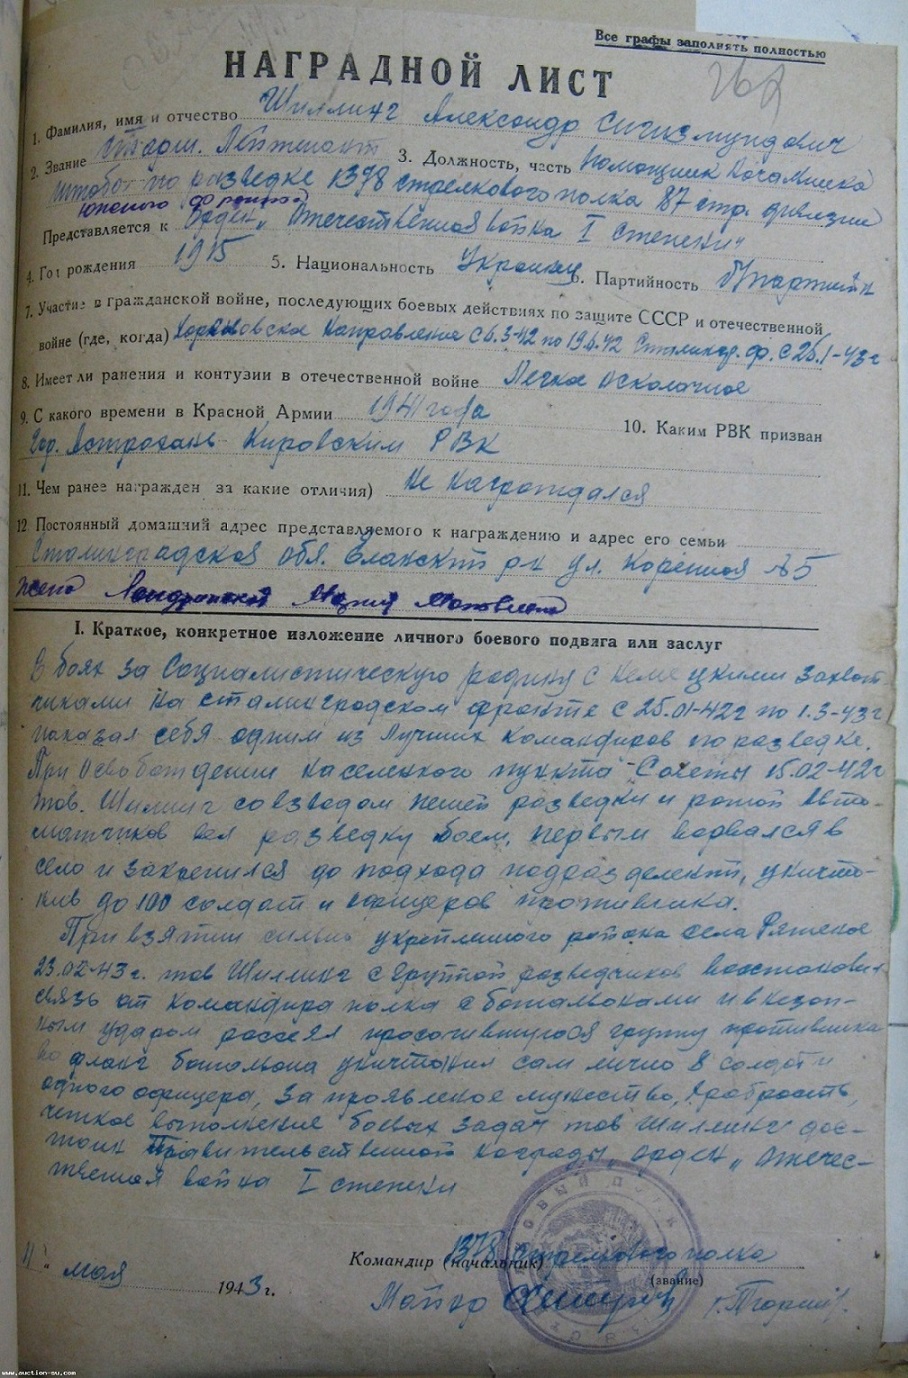 Все графы заполнять полностью
НАГРАДНОЙ ЛИСТ
1. Фамилия, имя и отчество Шиллинг Александр Сигизмундович
2. Звание Старш. Лейтенант 3. Должность, часть Помощник Начальника
штаба по разведке 1378 стрелкового полка 87 стр. дивизии
южного фронта
Представляется к Орден „Отечественная война I степени"
4. Год рождения 1915 5. Национальность Украинец 6. Партийность
7. Участие в гражданской войне, последующих боевых действиях по защите СССР и отечественной
войне (где, когда) Направление с 6.3-42 по 19.6.42 Сталинград. ф. с 25.1-43 г
8. Имеет ли ранения и контузии в отечественной войне Легкое осколочное
9. С какого времени в Красной Армии 1941 года 10. Каким РВК призван
Гор. Астрахань Кировским РВК
11. Чем ранее награжден за какие отличия) Не награждался
12 Постоянный домашний адрес представляемого к награждению и адрес его семьи
Сталинградская обл. Еланский р-н ул. №5
жена Мария
I. Краткое, конкретное изложение личного боевого подвига или заслуг
В боях за Социалистическую родину с немецкими захват
чиками на сталинградском фронте с 25.01-42 г по 1.3-43 г
показал себя одним из лучших командиров по разведке.
При освобождении населенного пункта Советы 15.02-42 г
тов. Шиллинг со взводом пешей разведки и ротой авто-
матчиков вел разведку боем, первым ворвался в
село и закрепился до подхода подразделений, уничто-
жив до 100 солдат и офицеров противника.
При взятии сильно укрепленного района села Ряженое
23.02-43 г. тов Шиллинг с группой разведчиков восстановил
связь от командира полка с батальонами и внезап-
ным ударом рассеял просочившуюся группу противника
во фланг батальона уничтожил сам лично 8 солдат и
одного офицера, За проявленое мужество, храбрость,
четкое выполнение боевых задач тов Шиллинг дос-
тоин Правительственной награды орден „Отечес-
твенная война I степени
11 " мая 1943 г. Командир (начальник) 1378 Стрелкового полка
(звание)
Майор
www.auction-su.com